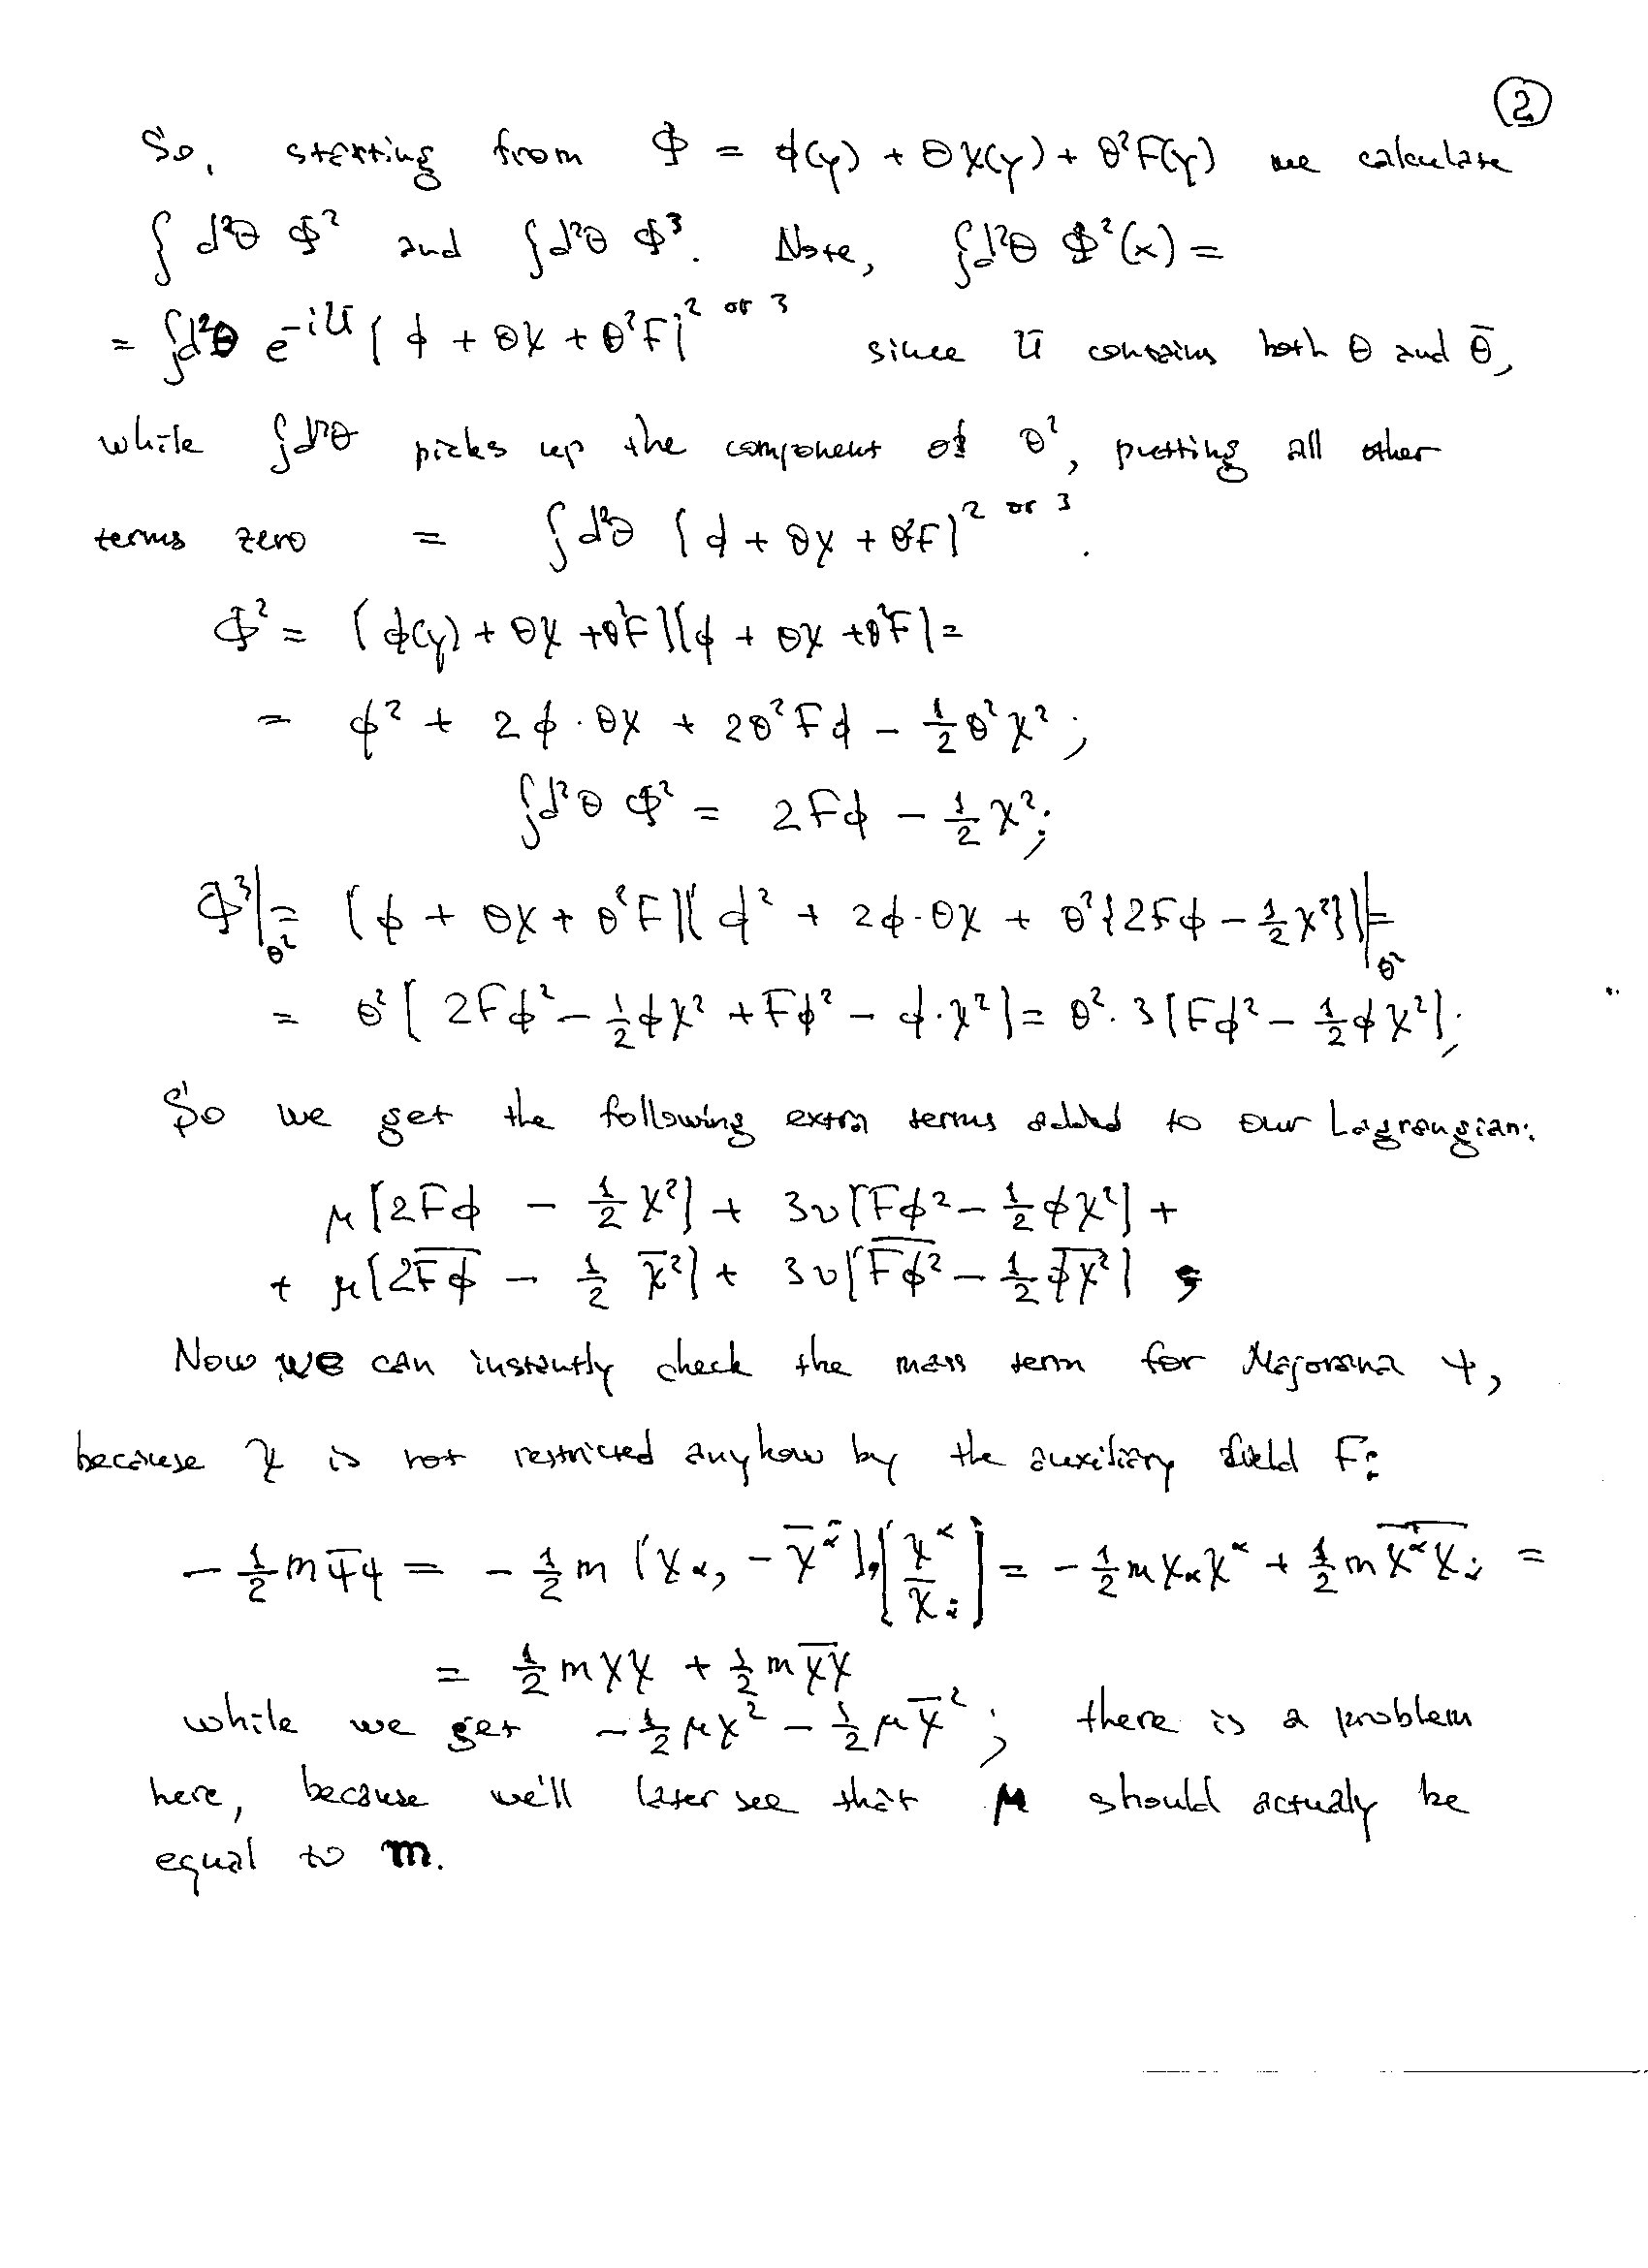 ②
So, starting from Φ = ϕ(y) + θχ(y) + θ²F(y) we calculate
∫d²θ Φ² and ∫d²θ Φ³. Note, ∫d²θ Φ²(x) =
= ∫d²θ e^{-iU} [ϕ + θχ + θ²F]^{2 or 3} since U contains both θ and θ̄,
while ∫d²θ picks up the component of θ², putting all other
terms zero = ∫d²θ [ϕ + θχ + θ²F]^{2 or 3}.
Φ² = [ϕ(y) + θχ + θ²F][ϕ + θχ + θ²F] =
= ϕ² + 2ϕ·θχ + 2θ²Fϕ - ½θ²χ²;
∫d²θ Φ² = 2Fϕ - ½χ²;
Φ³|_{θ²} = [ϕ + θχ + θ²F][ϕ² + 2ϕ·θχ + θ²{2Fϕ - ½χ²}]|_{θ²} =
= θ²[2Fϕ² - ½ϕχ² + Fϕ² - ϕ·χ²] = θ²·3[Fϕ² - ½ϕχ²];
So we get the following extra terms added to our Lagrangian:
μ[2Fϕ - ½χ²] + 3υ[Fϕ² - ½ϕχ²] +
+ μ[2\overline{Fϕ} - ½ χ̄²] + 3υ[\overline{Fϕ²} - ½\overline{ϕχ²}];
Now we can instantly check the mass term for Majorana ψ,
because χ is not restricted anyhow by the auxiliary field F:
-½mψ̄ψ = -½m (χ_α, -χ̄^{α̇})·[χ^α / χ̄_{α̇}] = -½mχ_αχ^α + ½m\overline{χ^{α̇}χ_{α̇}} =
= ½mχχ + ½m\overline{χχ}
while we get -½μχ² - ½μχ̄²; there is a problem
here, because we'll later see that μ should actualy be
equal to m.